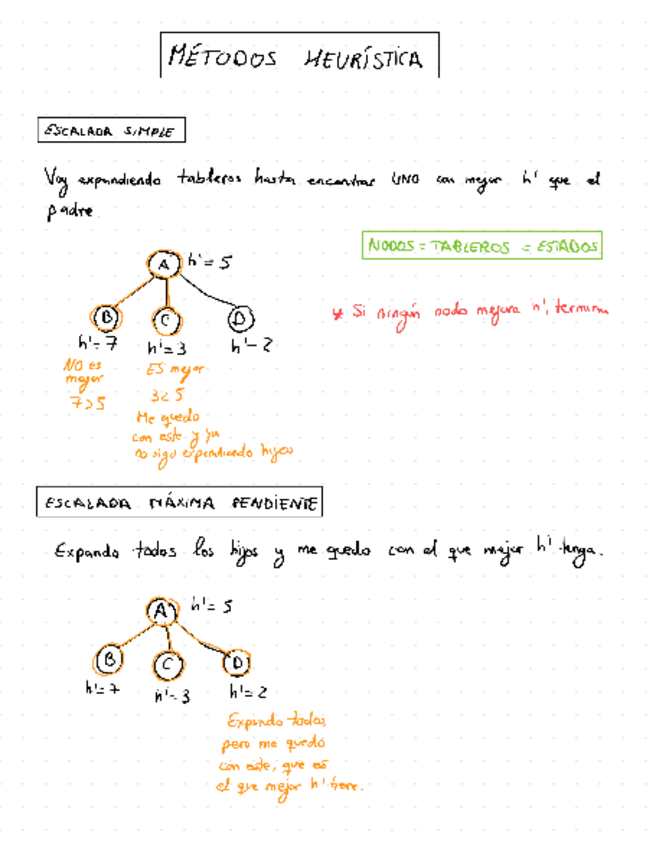 MÉTODOS HEURÍSTICA
ESCALADA SIMPLE
Voy expandiendo tableros hasta encontrar UNO con mejor h' que el
padre
NODOS = TABLEROS = ESTADOS
A h' = 5
* Si ningún nodo mejora h', termina
B C D
h' = 7 h' = 3 h' = 2
NO es ES mejor
mejor
7 > 5 3 < 5
Me quedo
con este y ya
no sigo expandiendo hijos
ESCALADA MÁXIMA PENDIENTE
Expando todos los hijos y me quedo con el que mejor h' tenga.
A h' = 5
B C D
h' = 7 h' = 3 h' = 2
Expando todos,
pero me quedo
con este, que es
el que mejor h' tiene.